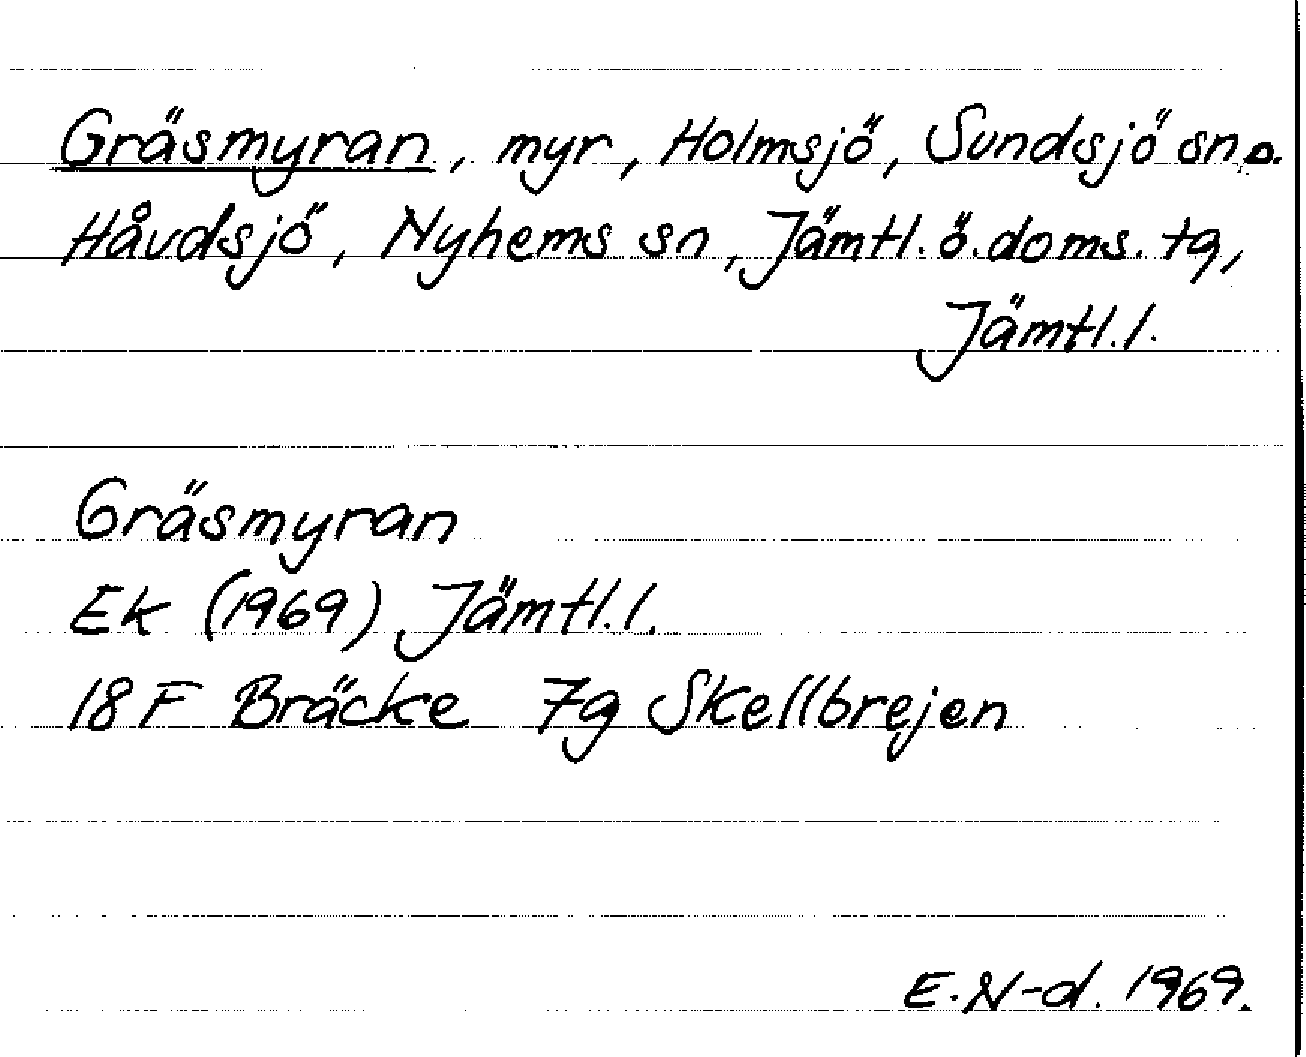 Gräsmyran, myr, Holmsjö, Sundsjö sn o.
Håvdsjö, Nyhems sn, Jämtl. ö. doms. tg,
Jämtl. l.
Gräsmyran
Ek (1969) Jämtl. l.
18 F Bräcke 7g Skellbrejen
E. N-d. 1969.